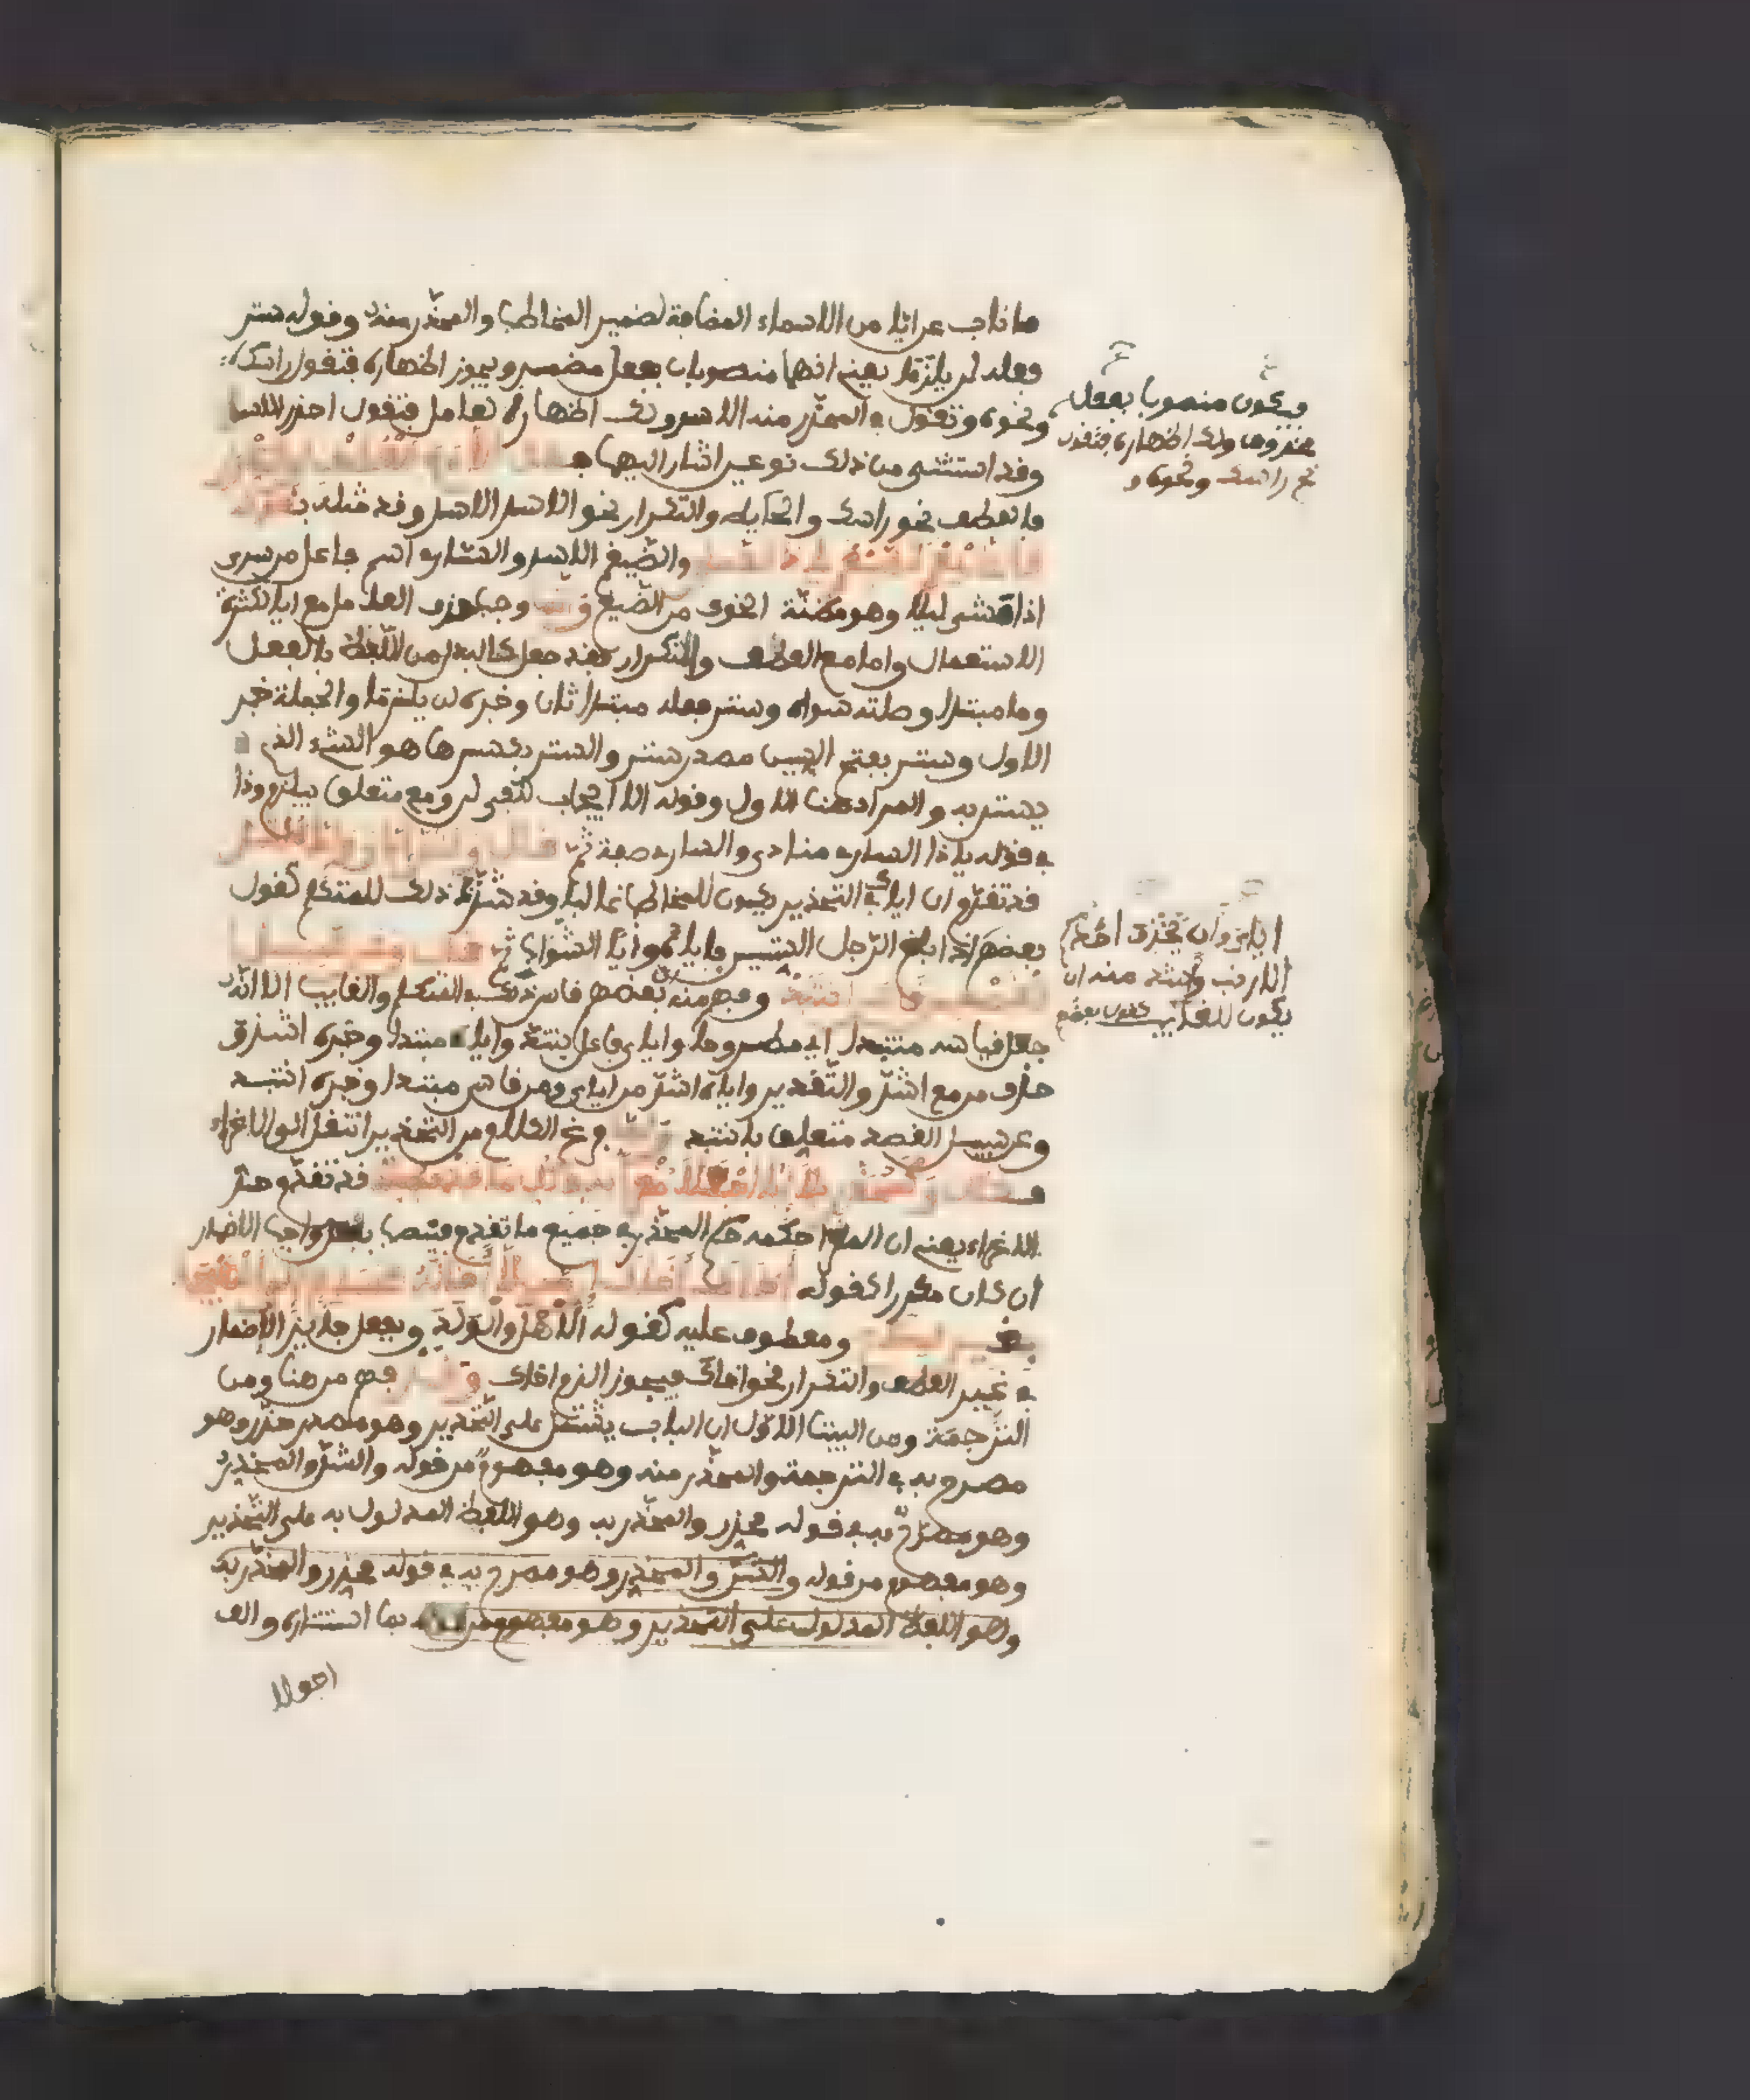 ما ناب عن ايا من الاسماء المضافة لضمير المخاطب والمحذر منه وقوله ستر
فعله لن يلزما يعني انهما منصوبان بفعل مضمر ويجوز اظهاره فتقول راسك
ونحوه وتقول في المحذر منه الاسد ولك اظهار العامل فتقول احذر الاسد
وقد استثنى من ذلك نوعين اشار اليهما
فالعطف نحو راسك والحايط والتكرار نحو الاسد الاسد وقد مثله بقوله
والضيغم الاسد والسارى اسم فاعل من سرى
اذا مشى ليلا وهو مظنة الخوف من الضيغم وجب حذف العامل مع ايا لكثرة
الاستعمال واما مع العطف والتكرار فقد جعل كالبدل من اللفظ بالفعل
وما مبتدا وصلته سواه وستر فعله مبتدا ثان وخبره لن يلزما والجملة خبر
الاول وستر بفتح السين مصدر ستر والستر بكسرها هو الشىء الذى
يستتر به والمراد هنا الاول وقوله الا ايجاب لنفى لن ومع متعلق بيلزم وذا
فى قوله ياذا السارى منادى والسارى صفة ثم قال وشذ اياى واياه اشذ
قد تقدم ان اياك فى التحذير يكون للمخاطب غالبا وقد شذ ذلك للمتكلم كقول
بعضهم اذا بلغ الرجل الستين فاياه وايا الشواب ثم قال وعن سبيل
القصد من قاس انتبذ وفهم منه بعضهم قاس ذلك فى المتكلم والغايب الا انه
جعل قياسه منتبذا اى مطروحا واياى فاعل بشذ واياه مبتدا وخبره اشذ وق
حذف من مع اشذ والتقدير واياه اشذ من اياى ومن قاس مبتدا وخبره انتبذ
وعن سبيل القصد متعلق بانتبذ ولما فرغ الكلام من التحذير انتقل الى الاغراء
فقال وكمحذر بلا ايا اجعلا مغرى به فى كل ما قد فصلا قد تقدم حد
الاغراء يعنى ان المغرى حكمه حكم المحذر فى جميع ما تقدم فينصب بفعل واجب الاضمار
ان كان مكررا كقوله اخاك اخاك ان من لا اخا له كساع الى الهيجا
بغير سلاح ومعطوف عليه كقوله الاهل والولد وبفعل جايز الاضمار
فى غير العطف والتكرار نحو اخاك فيجوز الزم اخاك وقد فهم من هنا ومن
الترجمة ومن البيت الاول ان الباب يشتمل على التحذير وهو مصدر حذر وهو
مصرح به فى الترجمة والمحذر منه وهو مفهوم من قوله والشر والمحذر
وهو مصرح به فى قوله محذر والمحذر به وهو اللفظ المدلول به على التحذير
وهو مفهوم من قوله والشر والمحذر وهو مصرح به فى قوله محذر والمحذر به
وهو اللفظ المدلول على التحذير وهو مفهوم من بما استتاره والف
اجعلا
فيكون منصوبا بفعل
محذوف ولك اظهاره فتقول
نح راسك ونحوه و
اياى وان يحذف احدكم
الارنب واشذ منه ان
يكون للغايب كقول بعضهم